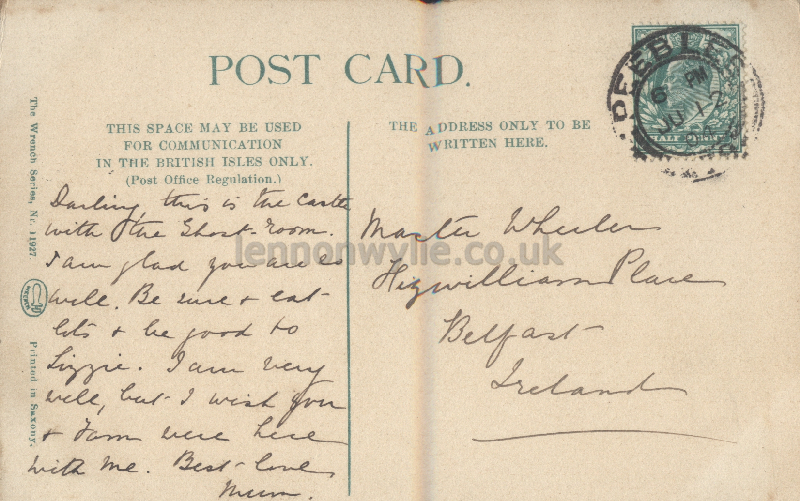 POST CARD.
THIS SPACE MAY BE USED
FOR COMMUNICATION
IN THE BRITISH ISLES ONLY.
(Post Office Regulation.)
THE ADDRESS ONLY TO BE
WRITTEN HERE.
PEEBLES
6 PM
JU 12
HALF PENNY
The Wrench Series, Nr. 11927
Printed in Saxony.
Darling, this is the Castle
with the Ghost-room.
I am glad you are so
well. Be sure & eat
lots & be good to
Lizzie. I am very
well, but I wish you
& Tom were here
with me. Best love,
Mum.
Master Wheeler
Fitzwilliam Place
Belfast
Ireland
lennonwylie.co.uk